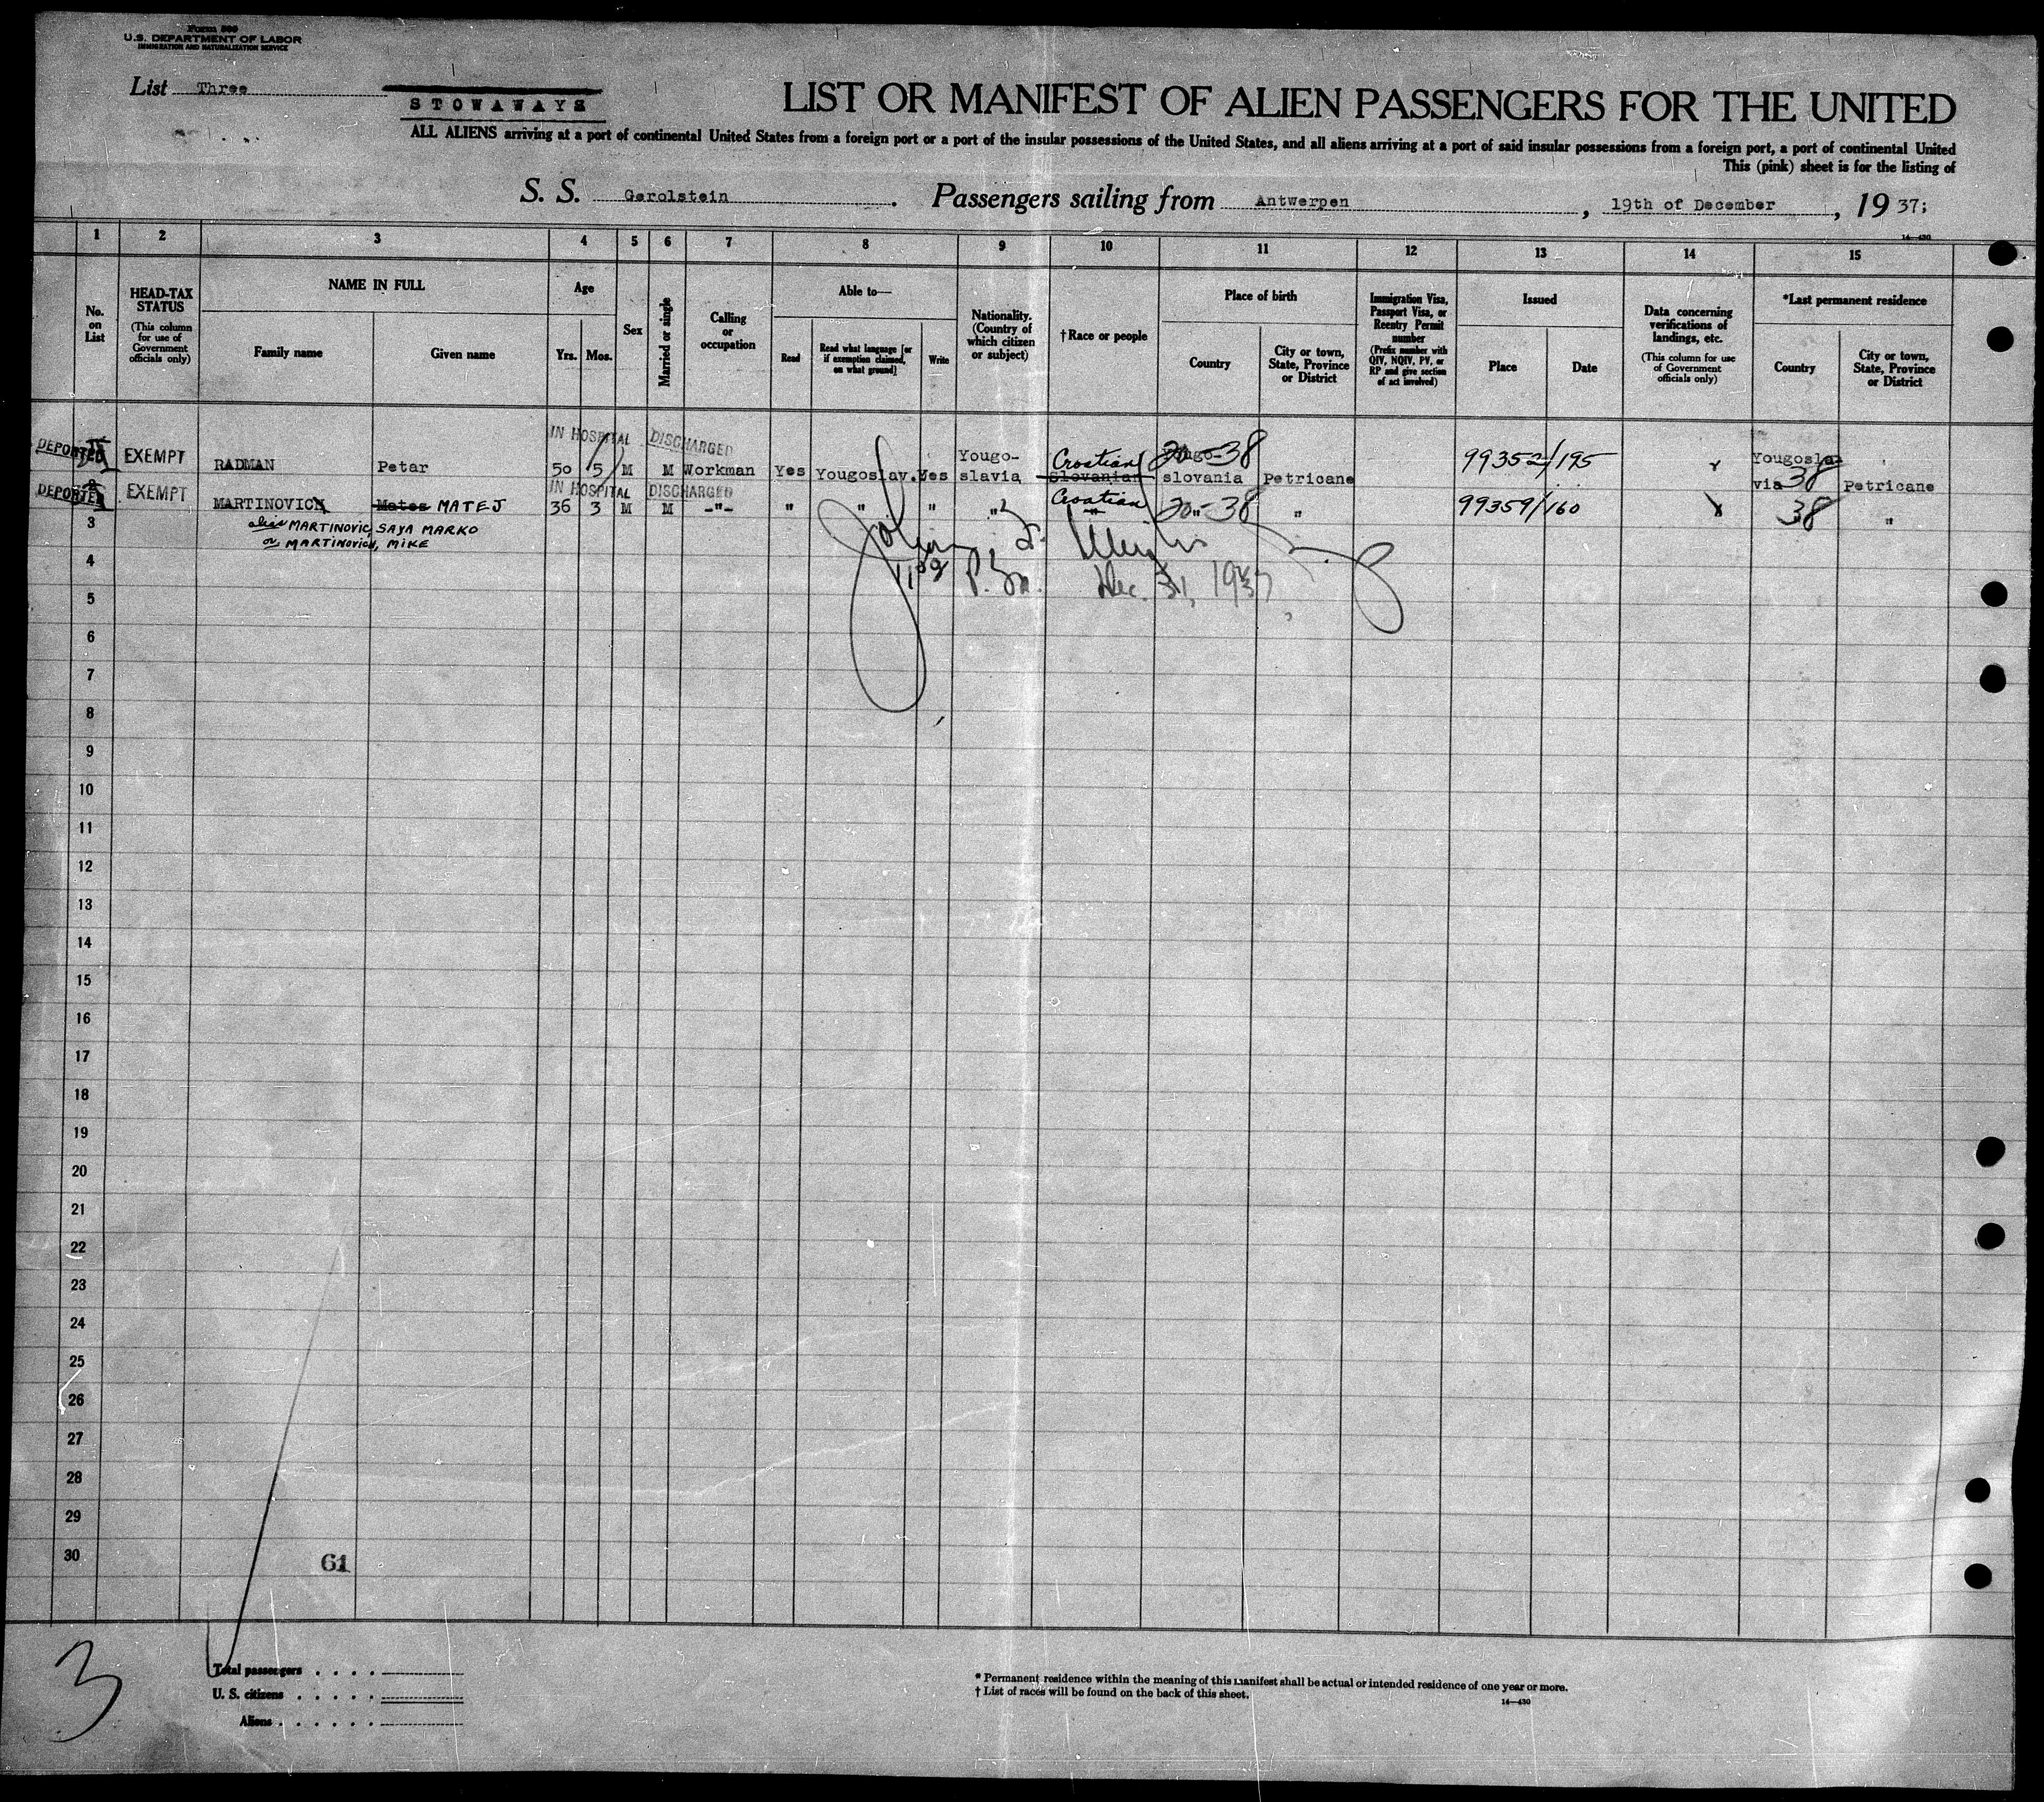 Form 500
U.S. DEPARTMENT OF LABOR
IMMIGRATION AND NATURALIZATION SERVICE
List Three
STOWAWAYS
LIST OR MANIFEST OF ALIEN PASSENGERS FOR THE UNITED
ALL ALIENS arriving at a port of continental United States from a foreign port or a port of the insular possessions of the United States, and all aliens arriving at a port of said insular possessions from a foreign port, a port of continental United
This (pink) sheet is for the listing of
S. S. Gerolstein. Passengers sailing from Antwerpen, 19th of December, 19 37;
14—430
1 2 3 4 5 6 7 8 9 10 11 12 13 14 15
No. on List
HEAD-TAX STATUS
(This column for use of Government officials only)
NAME IN FULL
Family name
Given name
Age
Yrs. Mos.
Sex
Married or single
Calling or occupation
Able to—
Read
Read what language [or if exemption claimed, on what ground]
Write
Nationality. (Country of which citizen or subject)
†Race or people
Place of birth
Country
City or town, State, Province or District
Immigration Visa, Passport Visa, or Reentry Permit number
(Prefix number with QIV, NQIV, PV, or RP and give section of act involved)
Issued
Place
Date
Data concerning verifications of landings, etc.
(This column for use of Government officials only)
*Last permanent residence
Country
City or town, State, Province or District
IN HOSPITAL DISCHARGED
DEPORTED EXEMPT RADMAN Petar 50 5 M M Workman Yes Yougoslav. Yes Yougo-slavia Croatian Slovanian Yougo-slovania 20-38 Petricane 99352/195 Yougoslavia 38 Petricane
IN HOSPITAL DISCHARGED
DEPORTED 2 EXEMPT MARTINOVICH Mates MATEJ 36 3 M M -"- " " " " Croatian " 20-38 " 99359/160 38 "
3 alias MARTINOVIC, SAYA MARKO
or MARTINOVICH, MIKE
John
4
P.M. Dec. 31, 1937
5
6
7
8
9
10
11
12
13
14
15
16
17
18
19
20
21
22
23
24
25
26
27
28
29
30
61
3
Total passengers
U. S. citizens
Aliens
* Permanent residence within the meaning of this manifest shall be actual or intended residence of one year or more.
† List of races will be found on the back of this sheet.
14—430